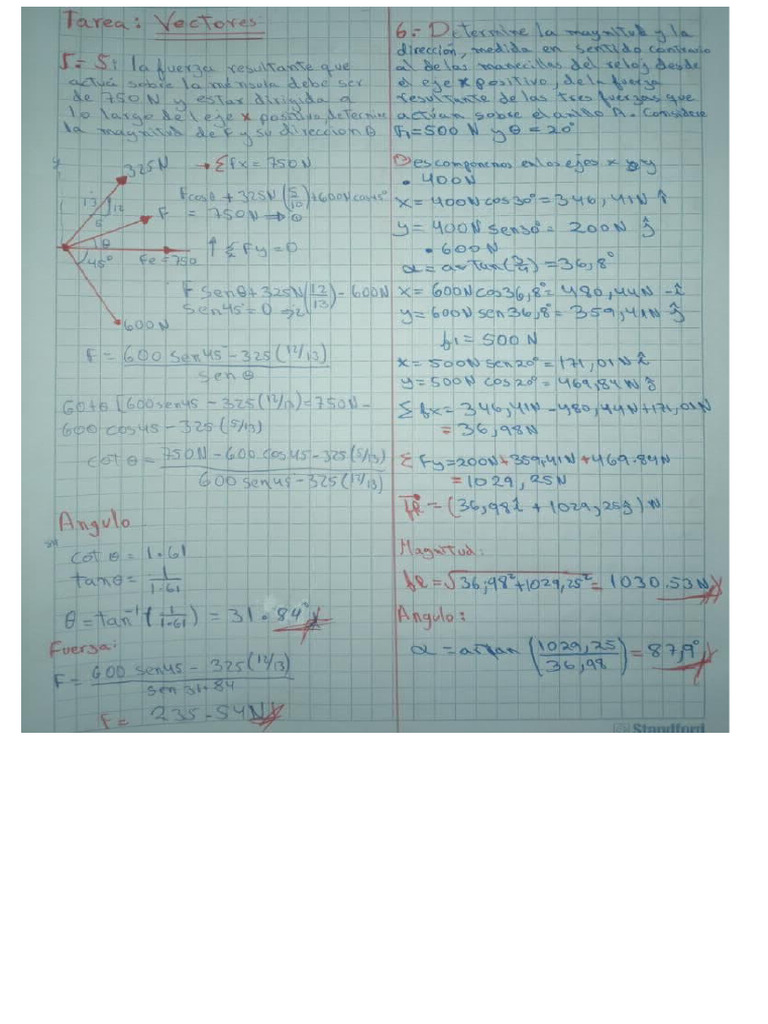 Tarea: Vectores
5.- Si la fuerza resultante que
actúa sobre la ménsula debe ser
de 750 N y estar dirigida a
lo largo del eje x positivo, determine
la magnitud de F y su dirección θ
325N
→ Σfx = 750N
Fcosθ + 325N (5/10) + 600N cos45°
= 750N ⇒ θ
13
12
5
F
θ
45°
Fe = 750
600N
↑ Σ Fy = 0
F senθ + 325N (12/13) - 600N
sen45 = 0
F = 600 sen45 - 325 (12/13) / sen θ
[600 sen45 - 325 (12/13) = 750N -
600 cos45 - 325 (5/13)
cot θ = 750N - 600 cos45 - 325 (5/13) / 600 sen45 - 325 (12/13)
Angulo
cot θ = 1.61
tanθ = 1/1.61
θ = tan⁻¹ (1/1.61) = 31.84°
Fuersa:
F = 600 sen45 - 325 (12/13) / sen 31.84
F = 235.54N
6.- Determine la magnitud y la
dirección, medida en sentido contrario
al de las manecillas del reloj desde
el eje x positivo, de la fuerza
resultante de las tres fuerzas que
actúan sobre el anillo A. Considere
F₁ = 500 N y θ = 20°
Descomponemos en los ejes x y
• 400N
x = 400N cos30° = 346,41N î
y = 400N sen30° = 200N ĵ
• 600N
α = arctan(3/4) = 36,8°
x = 600N cos36,8° = 480,44N -î
y = 600N sen36,8° = 359,41N ĵ
f₁ = 500 N
x = 500N sen20° = 171,01N î
y = 500N cos20° = 469,84N ĵ
Σfx = 346,41N - 480,44N + 171,01N
= 36,98N
ΣFy = 200N + 359,41N + 469.84N
= 1029,25N
FR = (36,98î + 1029,25ĵ) N
Magnitud:
fR = √36,98² + 1029,25² = 1030.53N
Angulo:
α = arctan (1029,25/36,98) = 87,9°
Standford